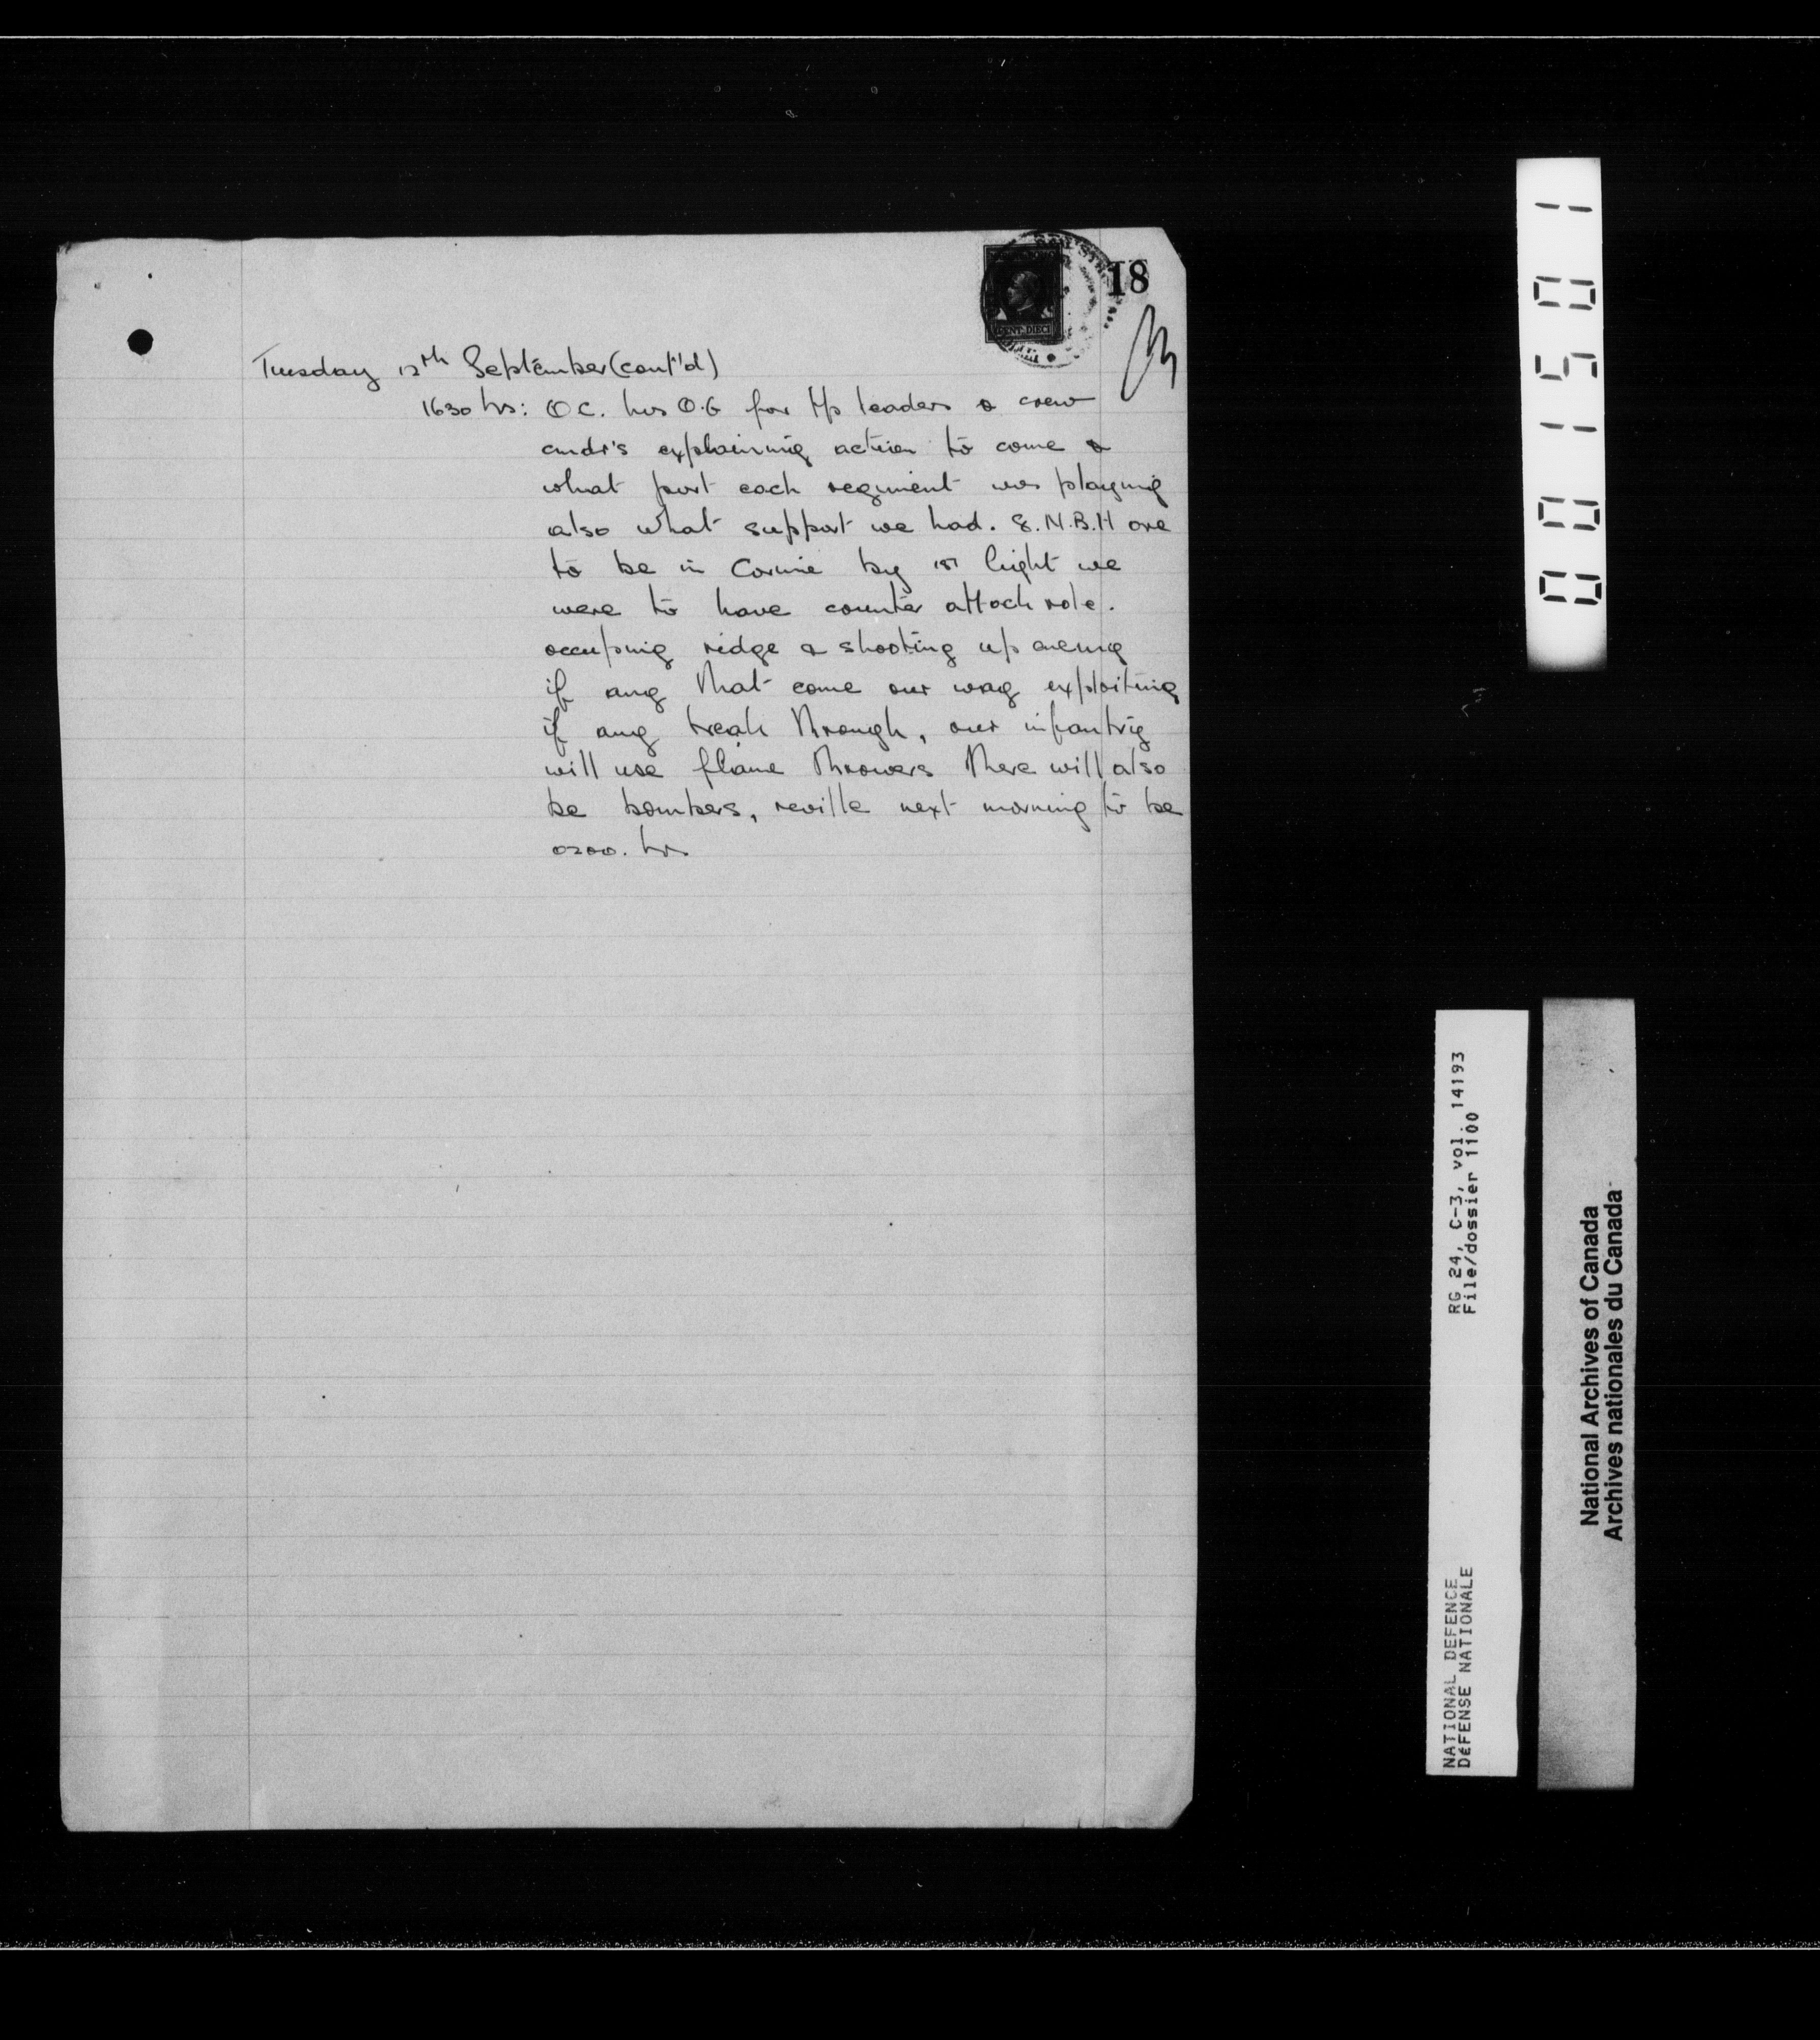 18
CENT. DIECI
Tuesday 12th September (cont'd)
1630 hrs: O.C. has O.G for tp leaders & crew
cmdr's explaining action to come &
what part each regiment was playing
also what support we had. 8. N.B.H are
to be in by 1st light we
were to have counter attack role.
occuping ridge & shooting up enemy
if any that come our way exploiting
if any break through, our infantry
will use flame throwers there will also
be bombers, reville next morning to be
0200. hrs
001501
RG 24, C-3, vol. 14193
File/dossier 1100
NATIONAL DEFENCE
DÉFENSE NATIONALE
National Archives of Canada
Archives nationales du Canada